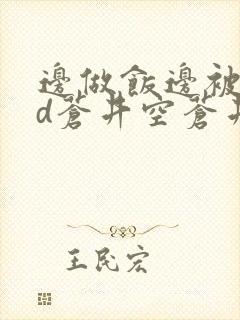 邊做飯邊被
d蒼井空蒼井
王民宏